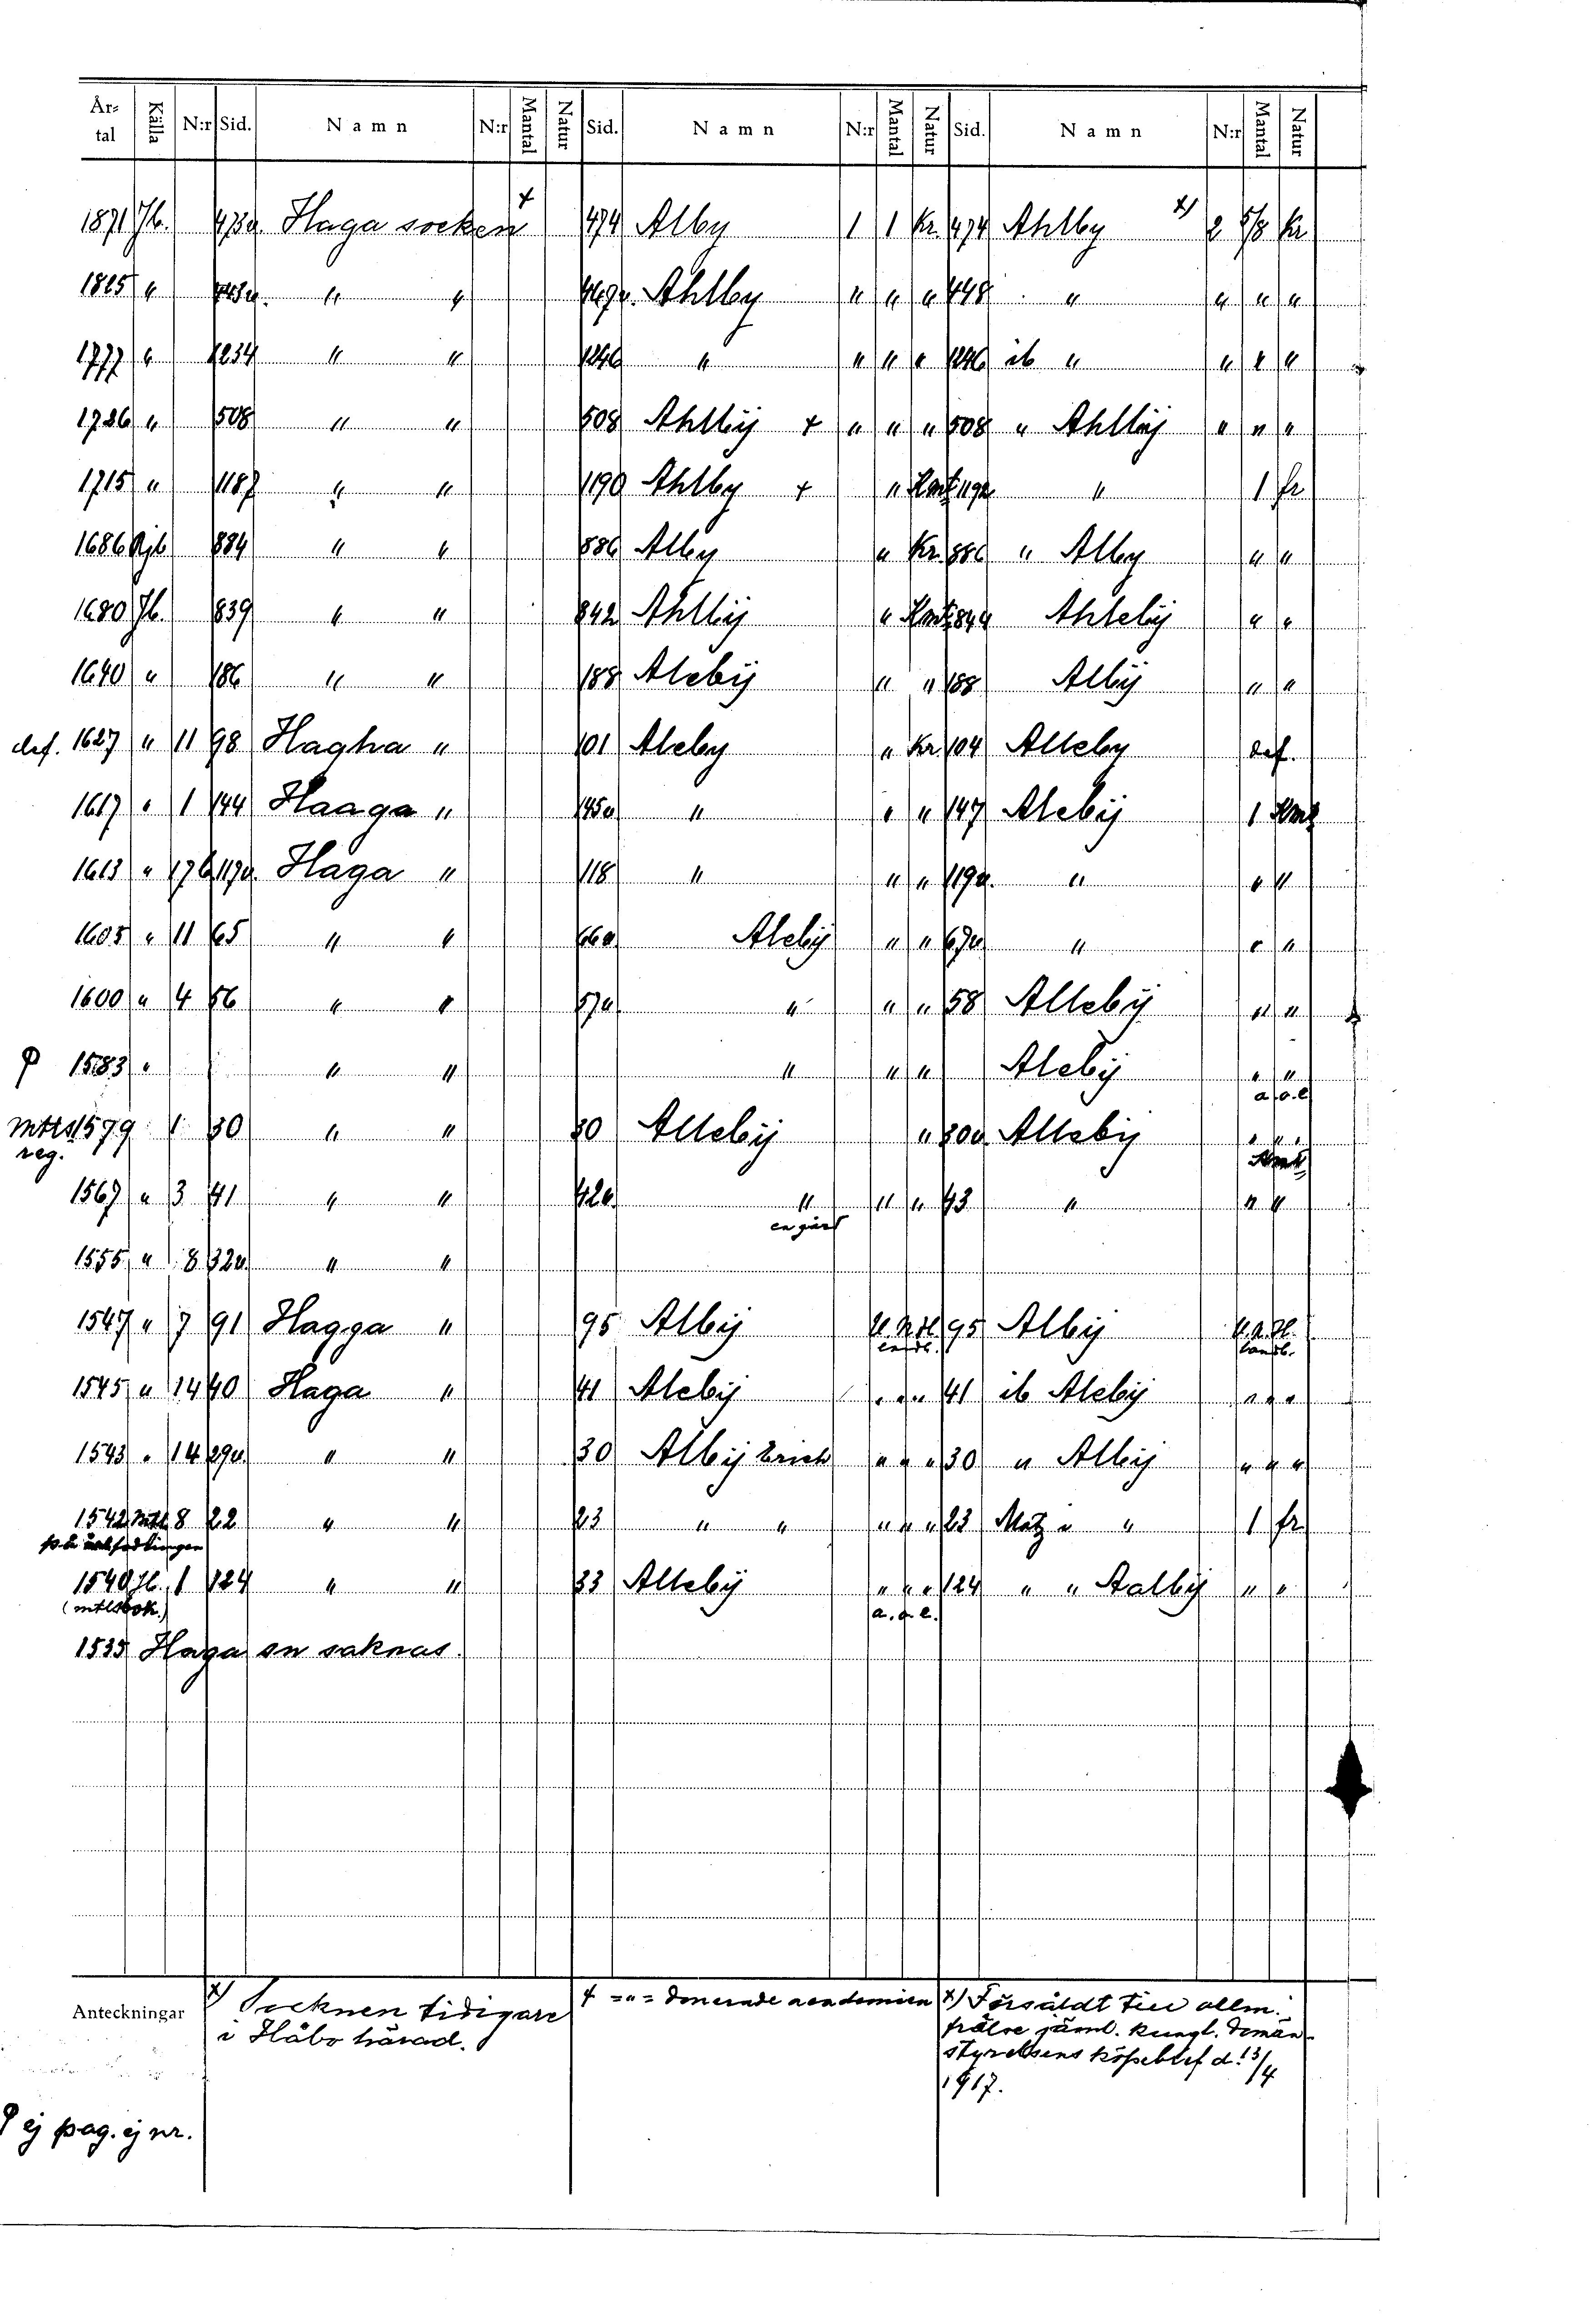 År-tal Källa N:r Sid. Namn N:r Mantal Natur Sid. Namn N:r Mantal Natur Sid. Namn N:r Mantal Natur
1871 Jb. 473v. Haga socken x 474 Alby 1 1 Kr. 474 Ahlby x) 2 5/8 Kr
1825 " " " Ahlby " " " 448 " " " "
1777 " 1234 " " 1246 " " " " 1246 ib " " " "
1726 " 508 " " 508 Ahlbÿ + " " " 508 " Ahlbÿ " " "
1715 " 1187 " " 1190 Ahlby + " " 1 fr
1686 884 " " 886 Alby " Kr. 886 " Alby " "
1680 Jb. 839 " " 842 Ahlbÿ " 844 Ahlebÿ " "
1640 " 186 " " 188 Alebÿ " " 188 Albÿ " "
def. 1627 " 11 98 Hagha " 101 Aleby " Kr. 104 Alleby def.
1617 " 1 144 Haaga " 145v " " " 147 Alebÿ 1
1613 " 17 117v. Haga " 118 " " " 119v. " " "
1605 " 11 65 " " 66v Alebÿ " " 67v " " "
1600 " 4 56 " " 57v " " " 58 Allebÿ " "
P 1583 " " " " " " Alebÿ " "
a. o. e
mtls 1579 1 30 " " 30 Allebÿ " 30v Allebÿ " " "
reg.
1567 " 3 41 " " 42v. " " " 43 " " "
en gård
1555 " 8 32v. " "
1547 " 7 91 Hagga " 95 Albÿ 95 Albÿ
landb. landb.
1545 " 14 40 Haga " 41 Alebÿ " " " 41 ib Alebÿ " " "
1543 " 14 29v. " " 30 Albÿ Erich " " " 30 " Albÿ " " "
1542 Mtl 8 22 " " 23 " " " " " 23 Matz " " 1 fr
1540 Jb. 1 124 " " 33 Allebÿ " " " 124 " " Aalbÿ " "
(mtlsbok.) a. o. e.
1535 Haga sn saknas.
Anteckningar
x) Socknen tidigare
i Håbo härad.
+ = " = donerade academien
x) Försåldt till allm.
frälse jäml. kungl. Domän-
styrelsens köpebref d. 13/4
1917.
P ej pag. ej nr.